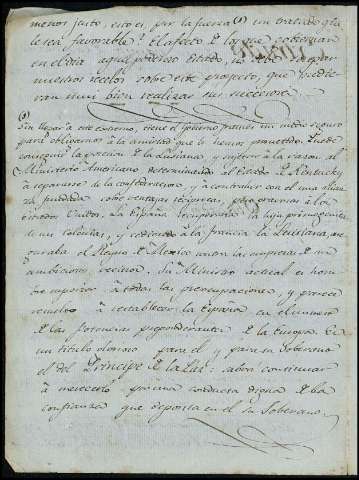 menos justo, cuio es, por la fuerza (1) un tratado q.e
le sea favorable? El afecto de los que gobiernan
en el dia aquel poderoso Estado, no debe
nuestros recelos sobre este proyecto, que pudie-
ran mui bien realizar sus sucesores.
(1)
Sin llegar a este extremo, tiene el Gobierno frances un medio seguro
para obligarnos a la amistad que le hemos prometido. Puede
conseguir la cesion de la Luisiana, y sujetar a la razon al
Ministerio Americano, determinando al Estado de Kentucky
a separarse de la confederacion, y a contraher con el una alian-
za, fundada sobre ventajas reciprocas, por contrarias a los
Estados Unidos. La España la hija primogenita
de sus colonias, y cediendo a la francia la Luisiana, ase-
guraba el Reyno de Mexico contra las empresas de un
ambicioso vecino. Su Ministro actual es hom-
bre superior a todas las preocupaciones, y parece
resuelto a restablecer la España en el numero
de las potencias preponderantes de la Europa. Es
un titulo glorioso para el y para su Soberano
el del Principe de la Paz: sabra continuar
a merecerlo por una conducta digna de la
confianza que deposita en el su Soberano.